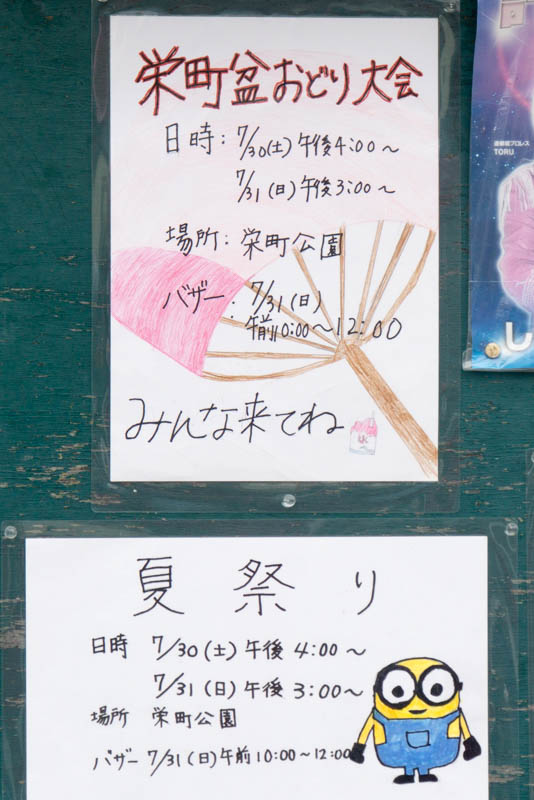 栄町盆おどり大会
日時：7/30(土)午後4:00～
7/31(日)午後3:00～
場所：栄町公園
バザー：7/31(日)
午前10:00～12:00
みんな来てね
TORU
し
夏祭り
日時 7/30(土)午後4:00～
7/31(日)午後3:00～
場所 栄町公園
バザー 7/31(日)午前10:00～12:00